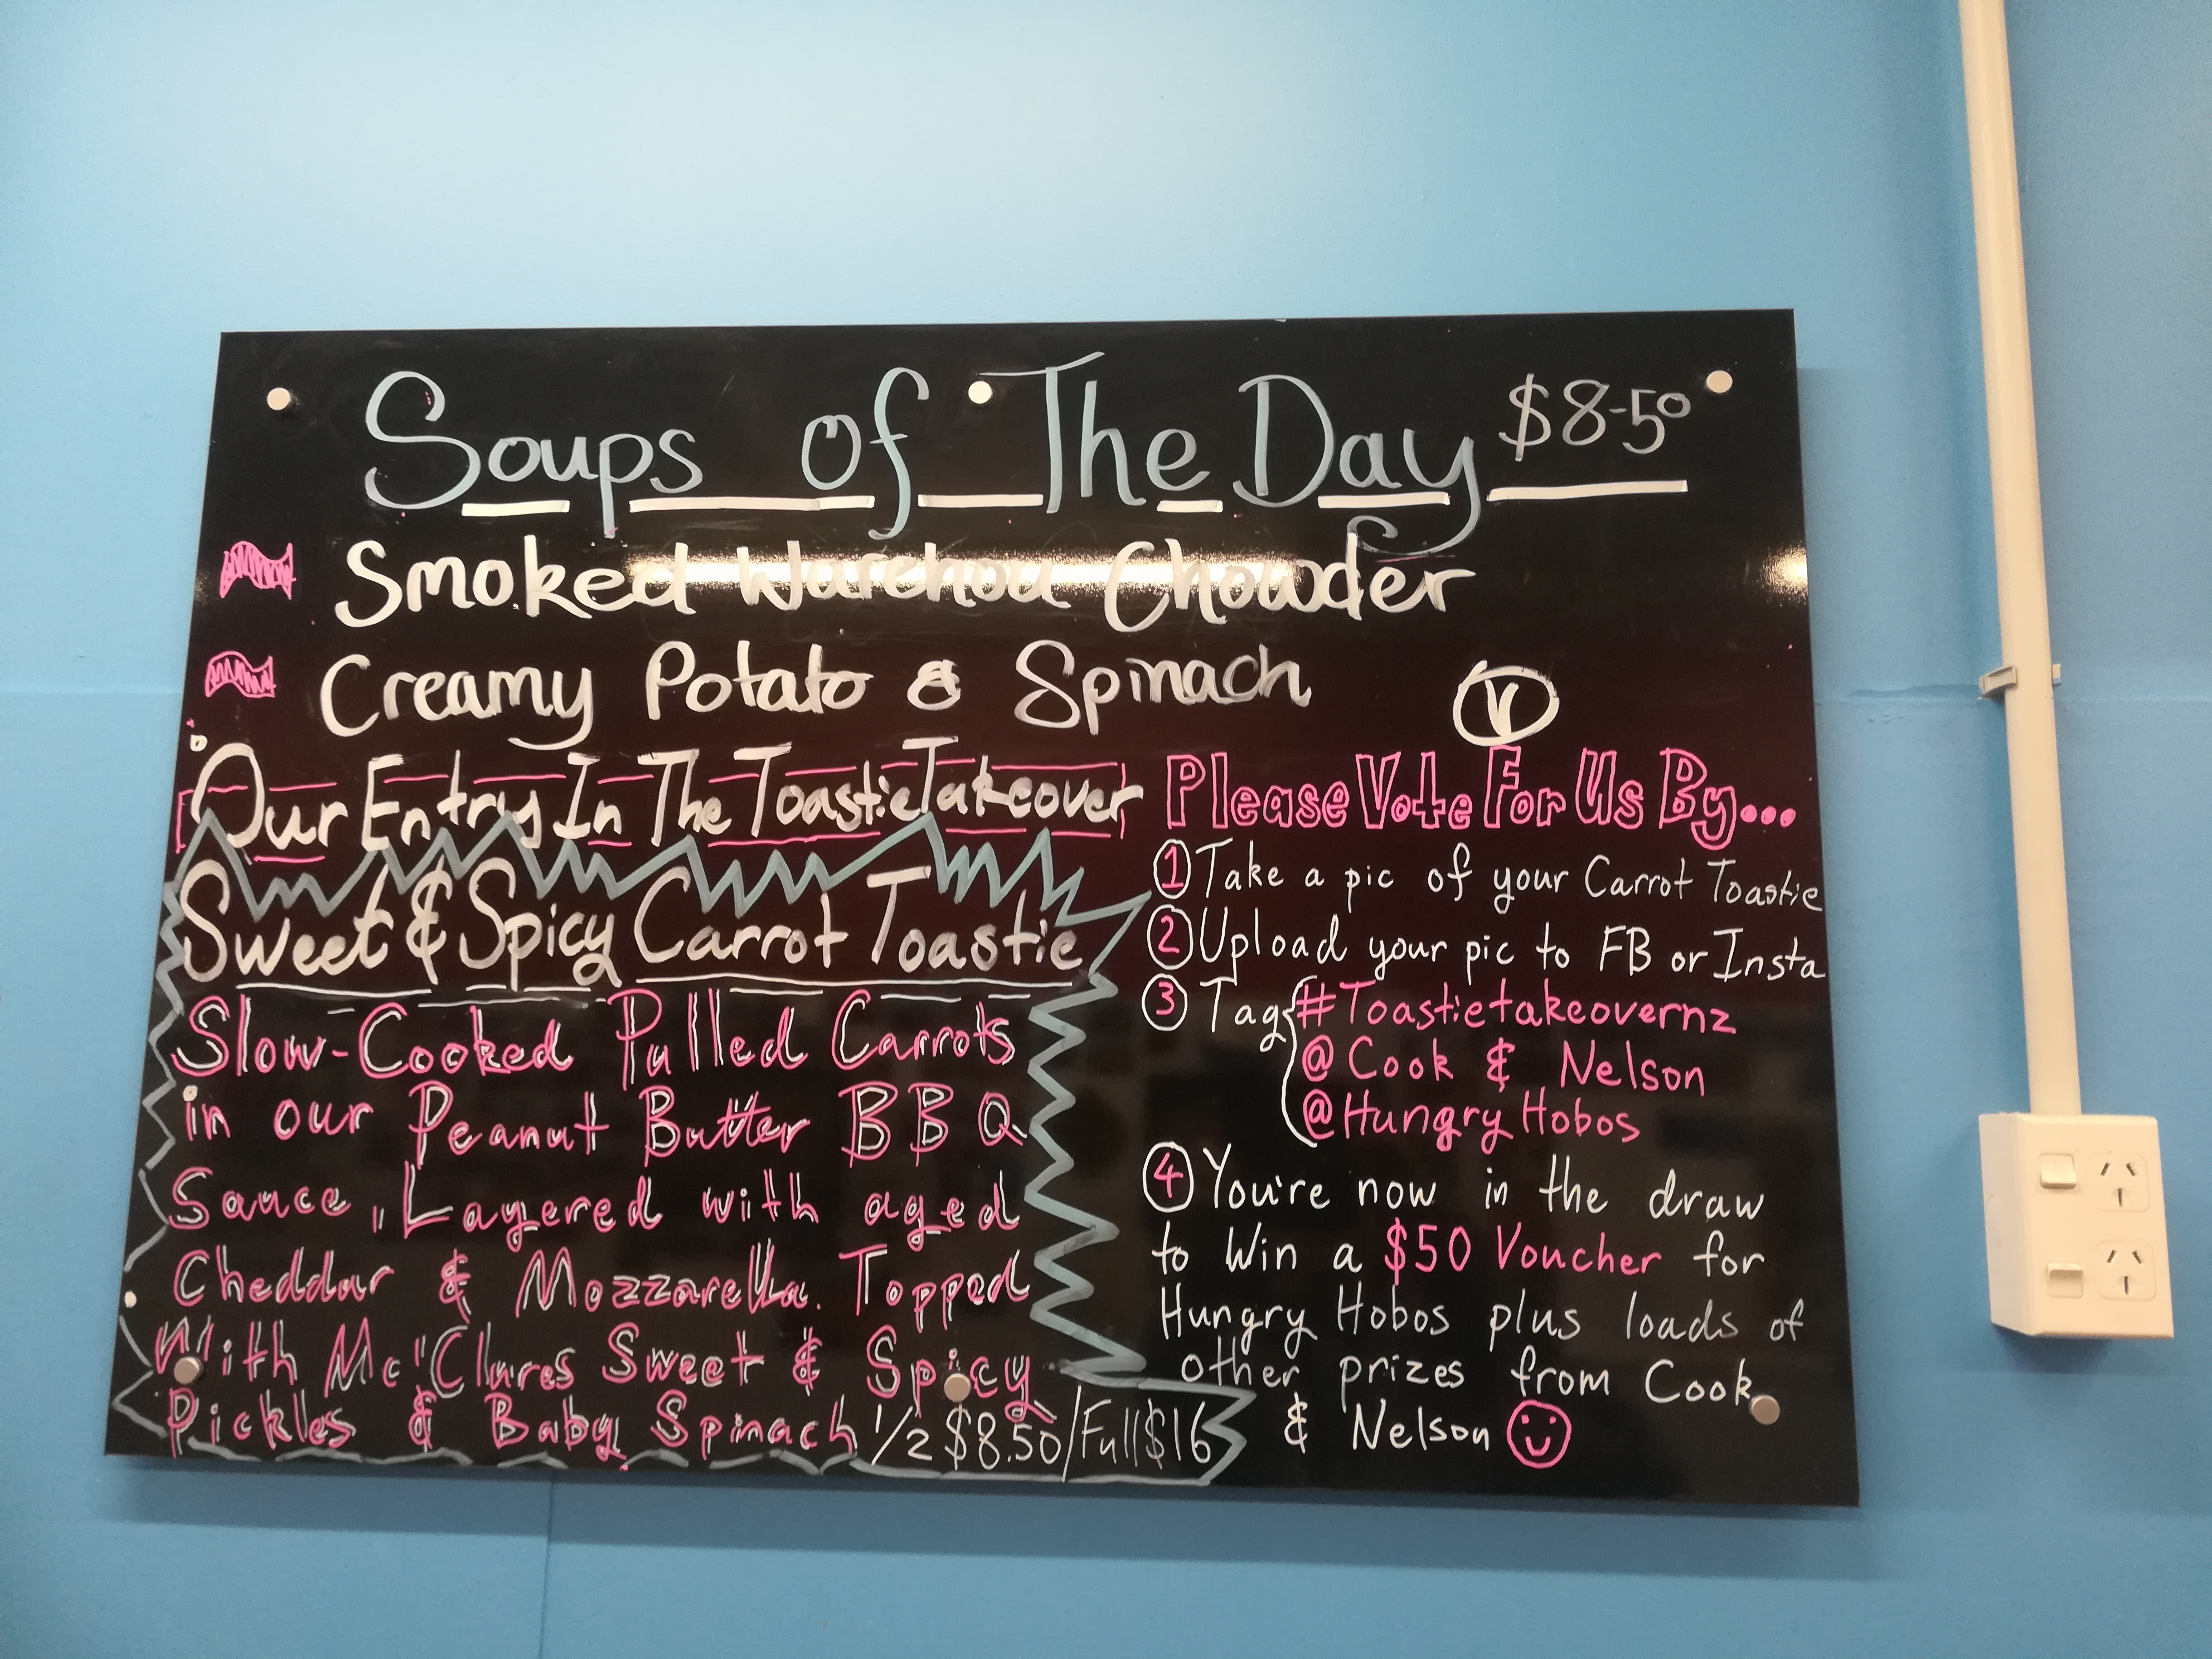 Soups of The Day $8.50
Smoked Warehou Chowder
Creamy Potato & Spinach V
Our Entry In The Toastie Takeover
Sweet & Spicy Carrot Toastie
Slow-Cooked Pulled Carrots
in our Peanut Butter BBQ
Sauce, Layered with aged
Cheddar & Mozzarella. Topped
With Mc'Clures Sweet & Spicy
Pickles & Baby Spinach 1/2 $8.50/Full $16
Please Vote For Us By...
1 Take a pic of your Carrot Toastie
2 Upload your pic to FB or Insta
3 Tag #Toastietakeovernz
@Cook & Nelson
@Hungry Hobos
4 You're now in the draw
to Win a $50 Voucher for
Hungry Hobos plus loads of
other prizes from Cook
& Nelson